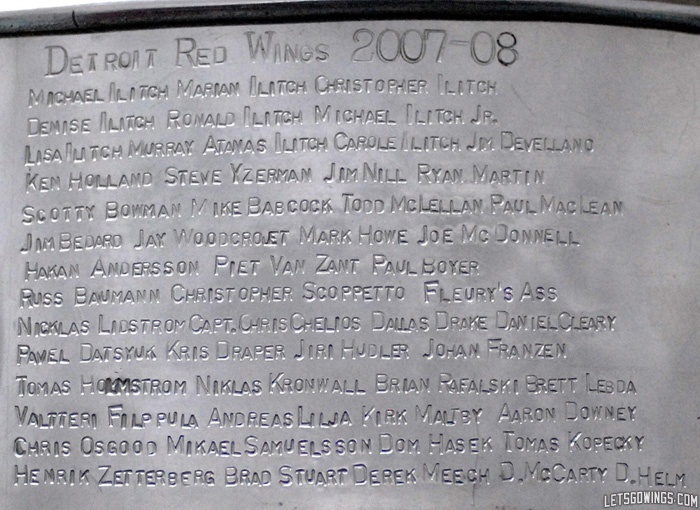 DETROIT RED WINGS 2007-08
MICHAEL ILITCH MARIAN ILITCH CHRISTOPHER ILITCH
DENISE ILITCH RONALD ILITCH MICHAEL ILITCH JR.
LISA ILITCH MURRAY ATANAS ILITCH CAROLE ILITCH JIM DEVELLANO
KEN HOLLAND STEVE YZERMAN JIM NILL RYAN MARTIN
SCOTTY BOWMAN MIKE BABCOCK TODD MCLELLAN PAUL MACLEAN
JIM BEDARD JAY WOODCROFT MARK HOWE JOE MCDONNELL
HAKAN ANDERSSON PIET VAN ZANT PAUL BOYER
RUSS BAUMANN CHRISTOPHER SCOPPETTO FLEURY'S ASS
NICKLAS LIDSTROM CAPT. CHRIS CHELIOS DALLAS DRAKE DANIEL CLEARY
PAVEL DATSYUK KRIS DRAPER JIRI HUDLER JOHAN FRANZEN
TOMAS HOLMSTROM NIKLAS KRONWALL BRIAN RAFALSKI BRETT LEBDA
VALTTERI FILPPULA ANDREAS LILJA KIRK MALTBY AARON DOWNEY
CHRIS OSGOOD MIKAEL SAMUELSSON DOM HASEK TOMAS KOPECKY
HENRIK ZETTERBERG BRAD STUART DEREK MEECH D. MCCARTY D. HELM
LETSGOWINGS.COM